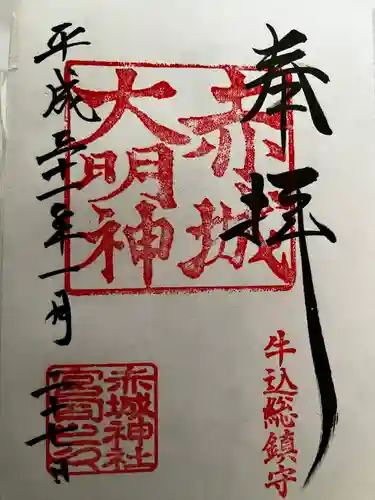 奉拝
牛込総鎮守
赤城
大明神
赤城神社
平成三十一年一月二十七日